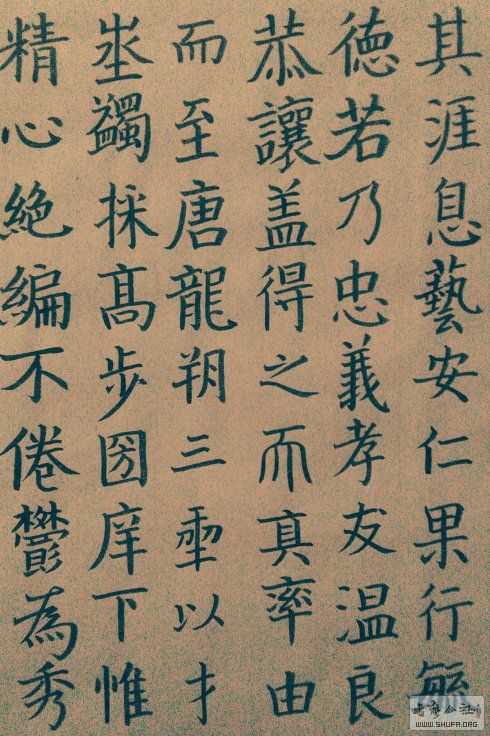 其涯息藝安仁果行
徳若乃忠義孝友温良
恭讓盖得之而真率由
而至唐龍朔三以
蠲採髙步圀庠下惟
精心絶編不倦鬱為秀
WWW.SHUFA.ORG